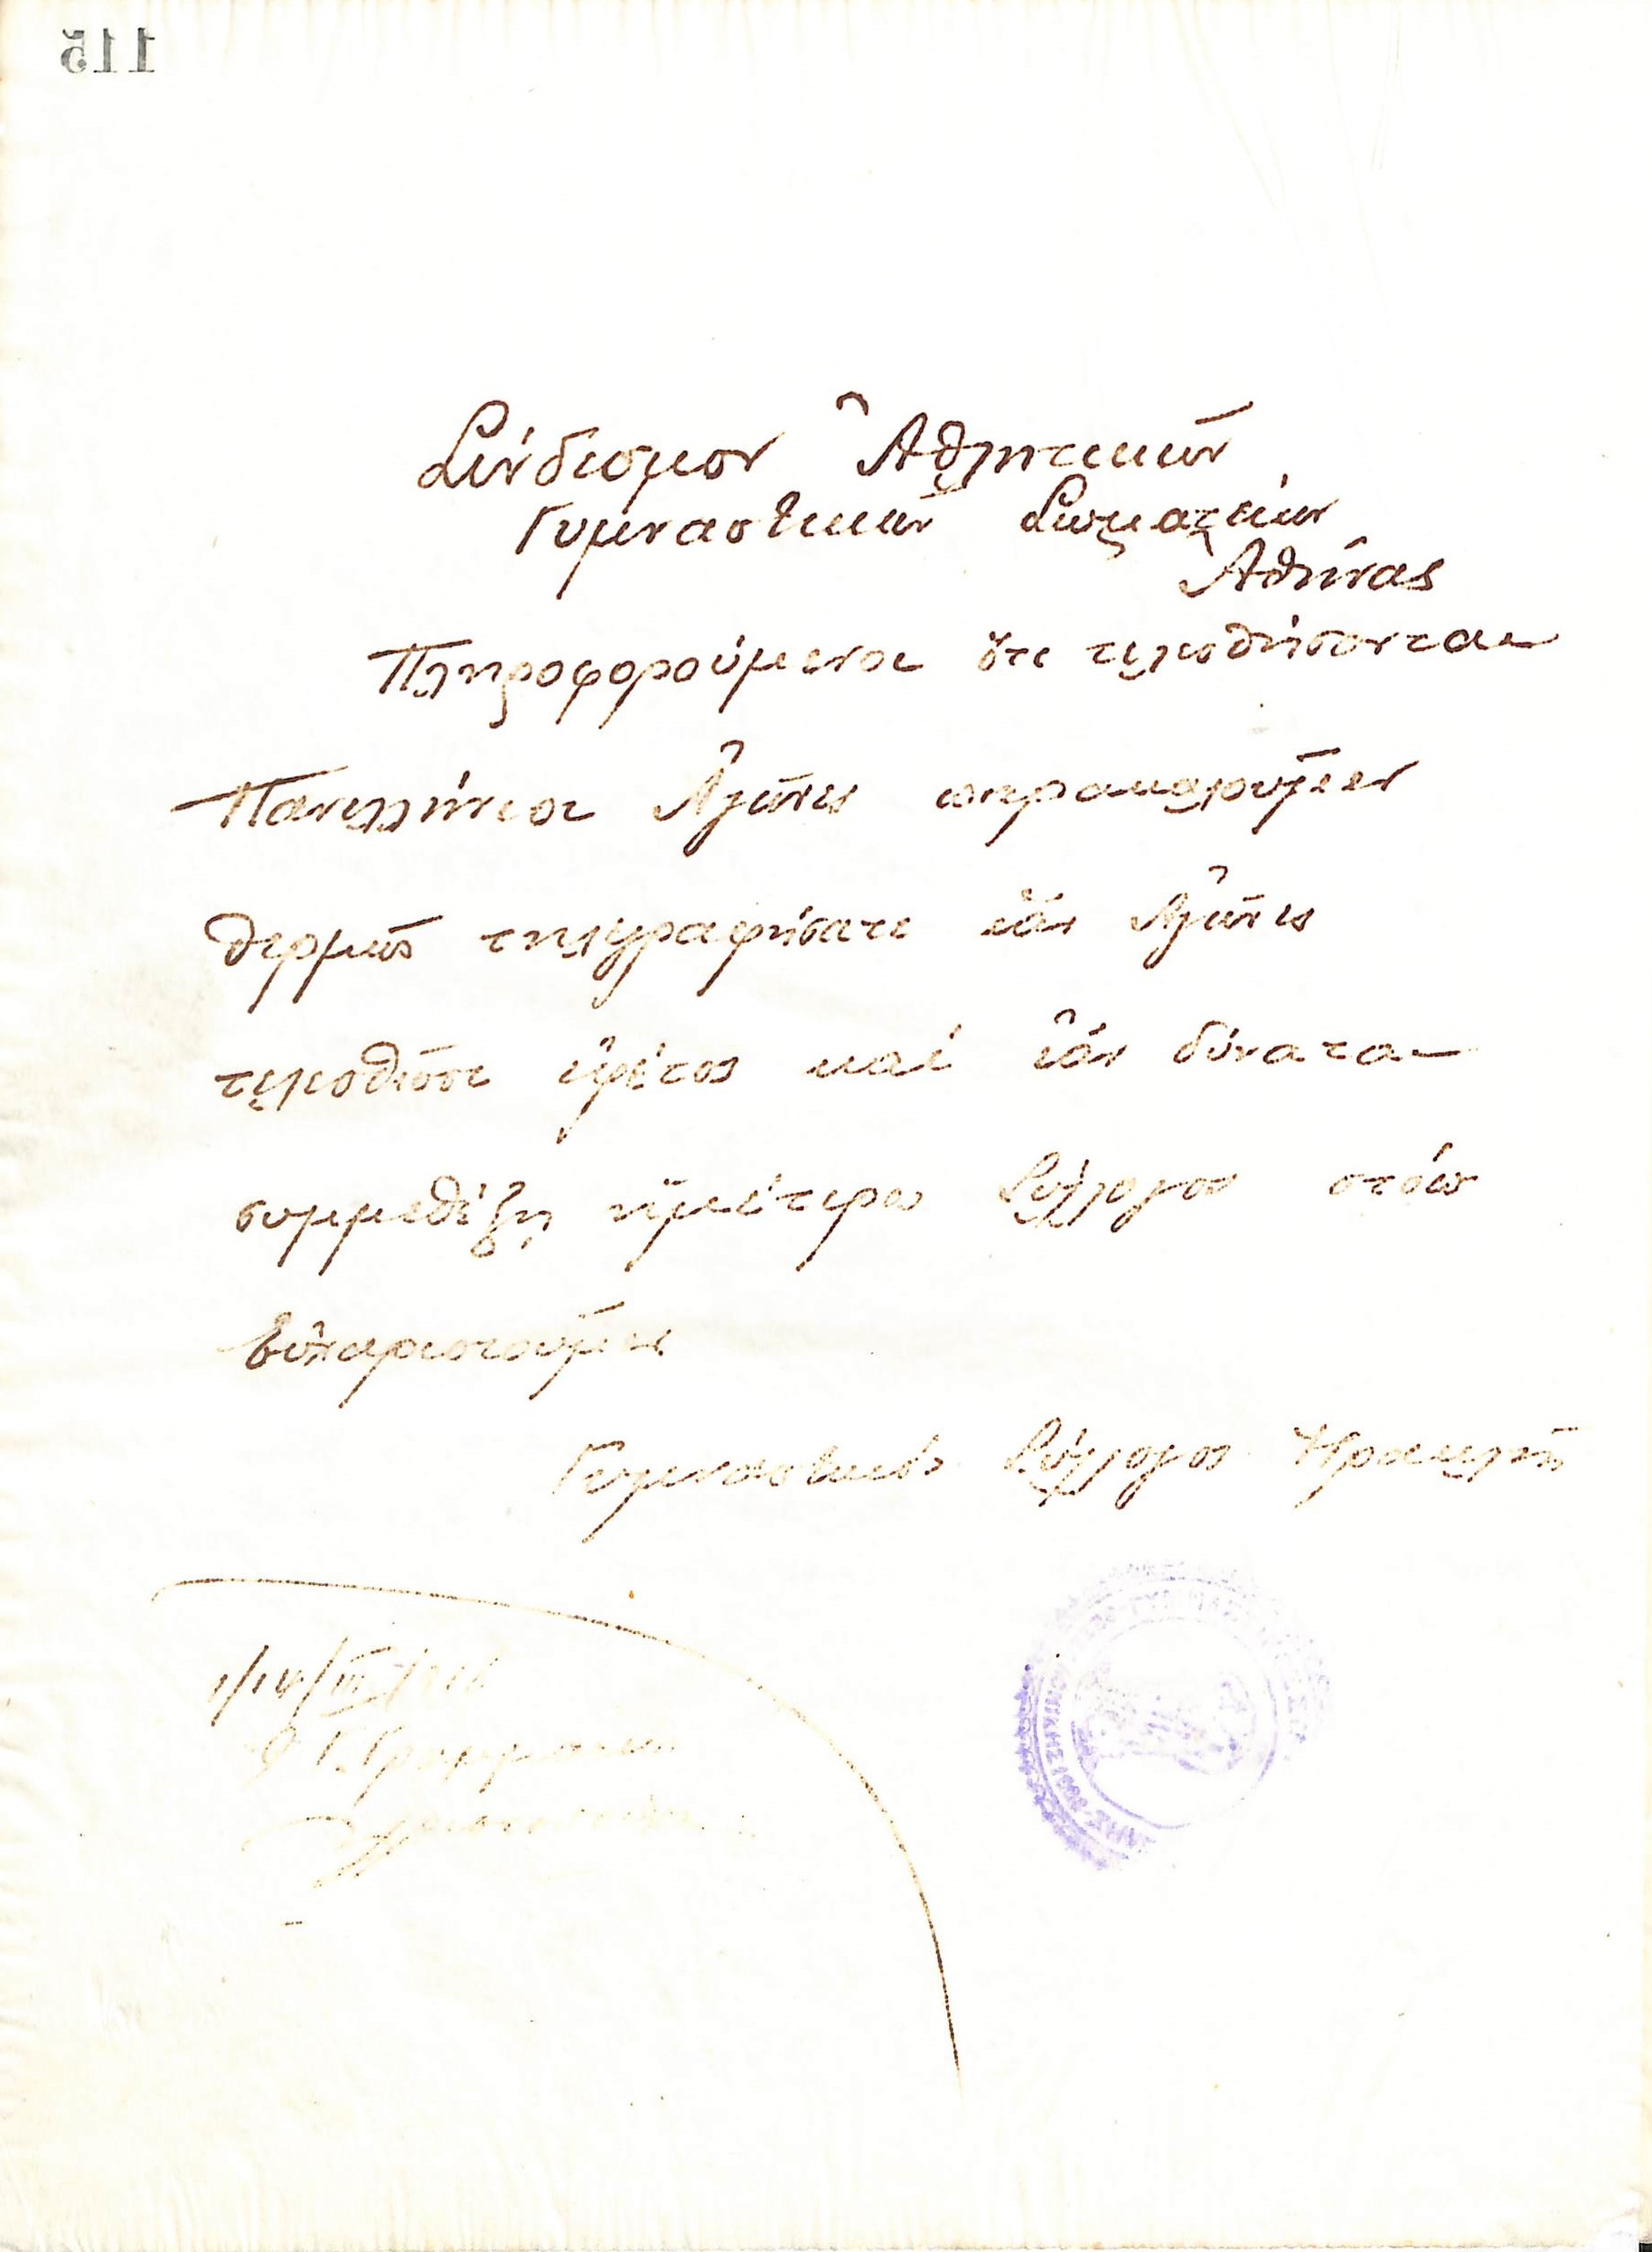 115
Σύνδεσμον Ἀθλητικῶν
Γυμναστικῶν Σωματείων
Ἀθήνας
Πληροφορούμενοι ὅτι τελεσθήσονται
Πανελλήνιοι Ἀγῶνες παρακαλοῦμεν
θερμῶς τηλεγραφήσατε ἐὰν Ἀγῶνες
τελεσθῶσι ἐφέτος καὶ ἐὰν δύναται
συμμεθέξῃ ἡμέτερος Σύλλογος
Εὐχαριστοῦμεν
Γυμναστικός Σύλλογος Ἡρακλῆς
1/14/III
Γ. Γραμματεὺς